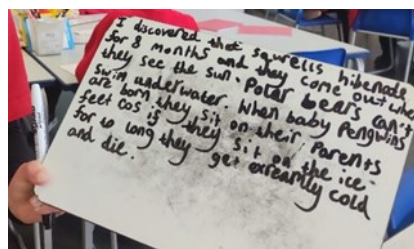 I discovered that sqwrells hibenade
for 8 months and they come out when
they see the sun. Polar bears can't
swim underwater. When baby Penguins
are born they sit on their Parents
feet cos if they sit on the ice
for to long they get extreamly cold
and die.